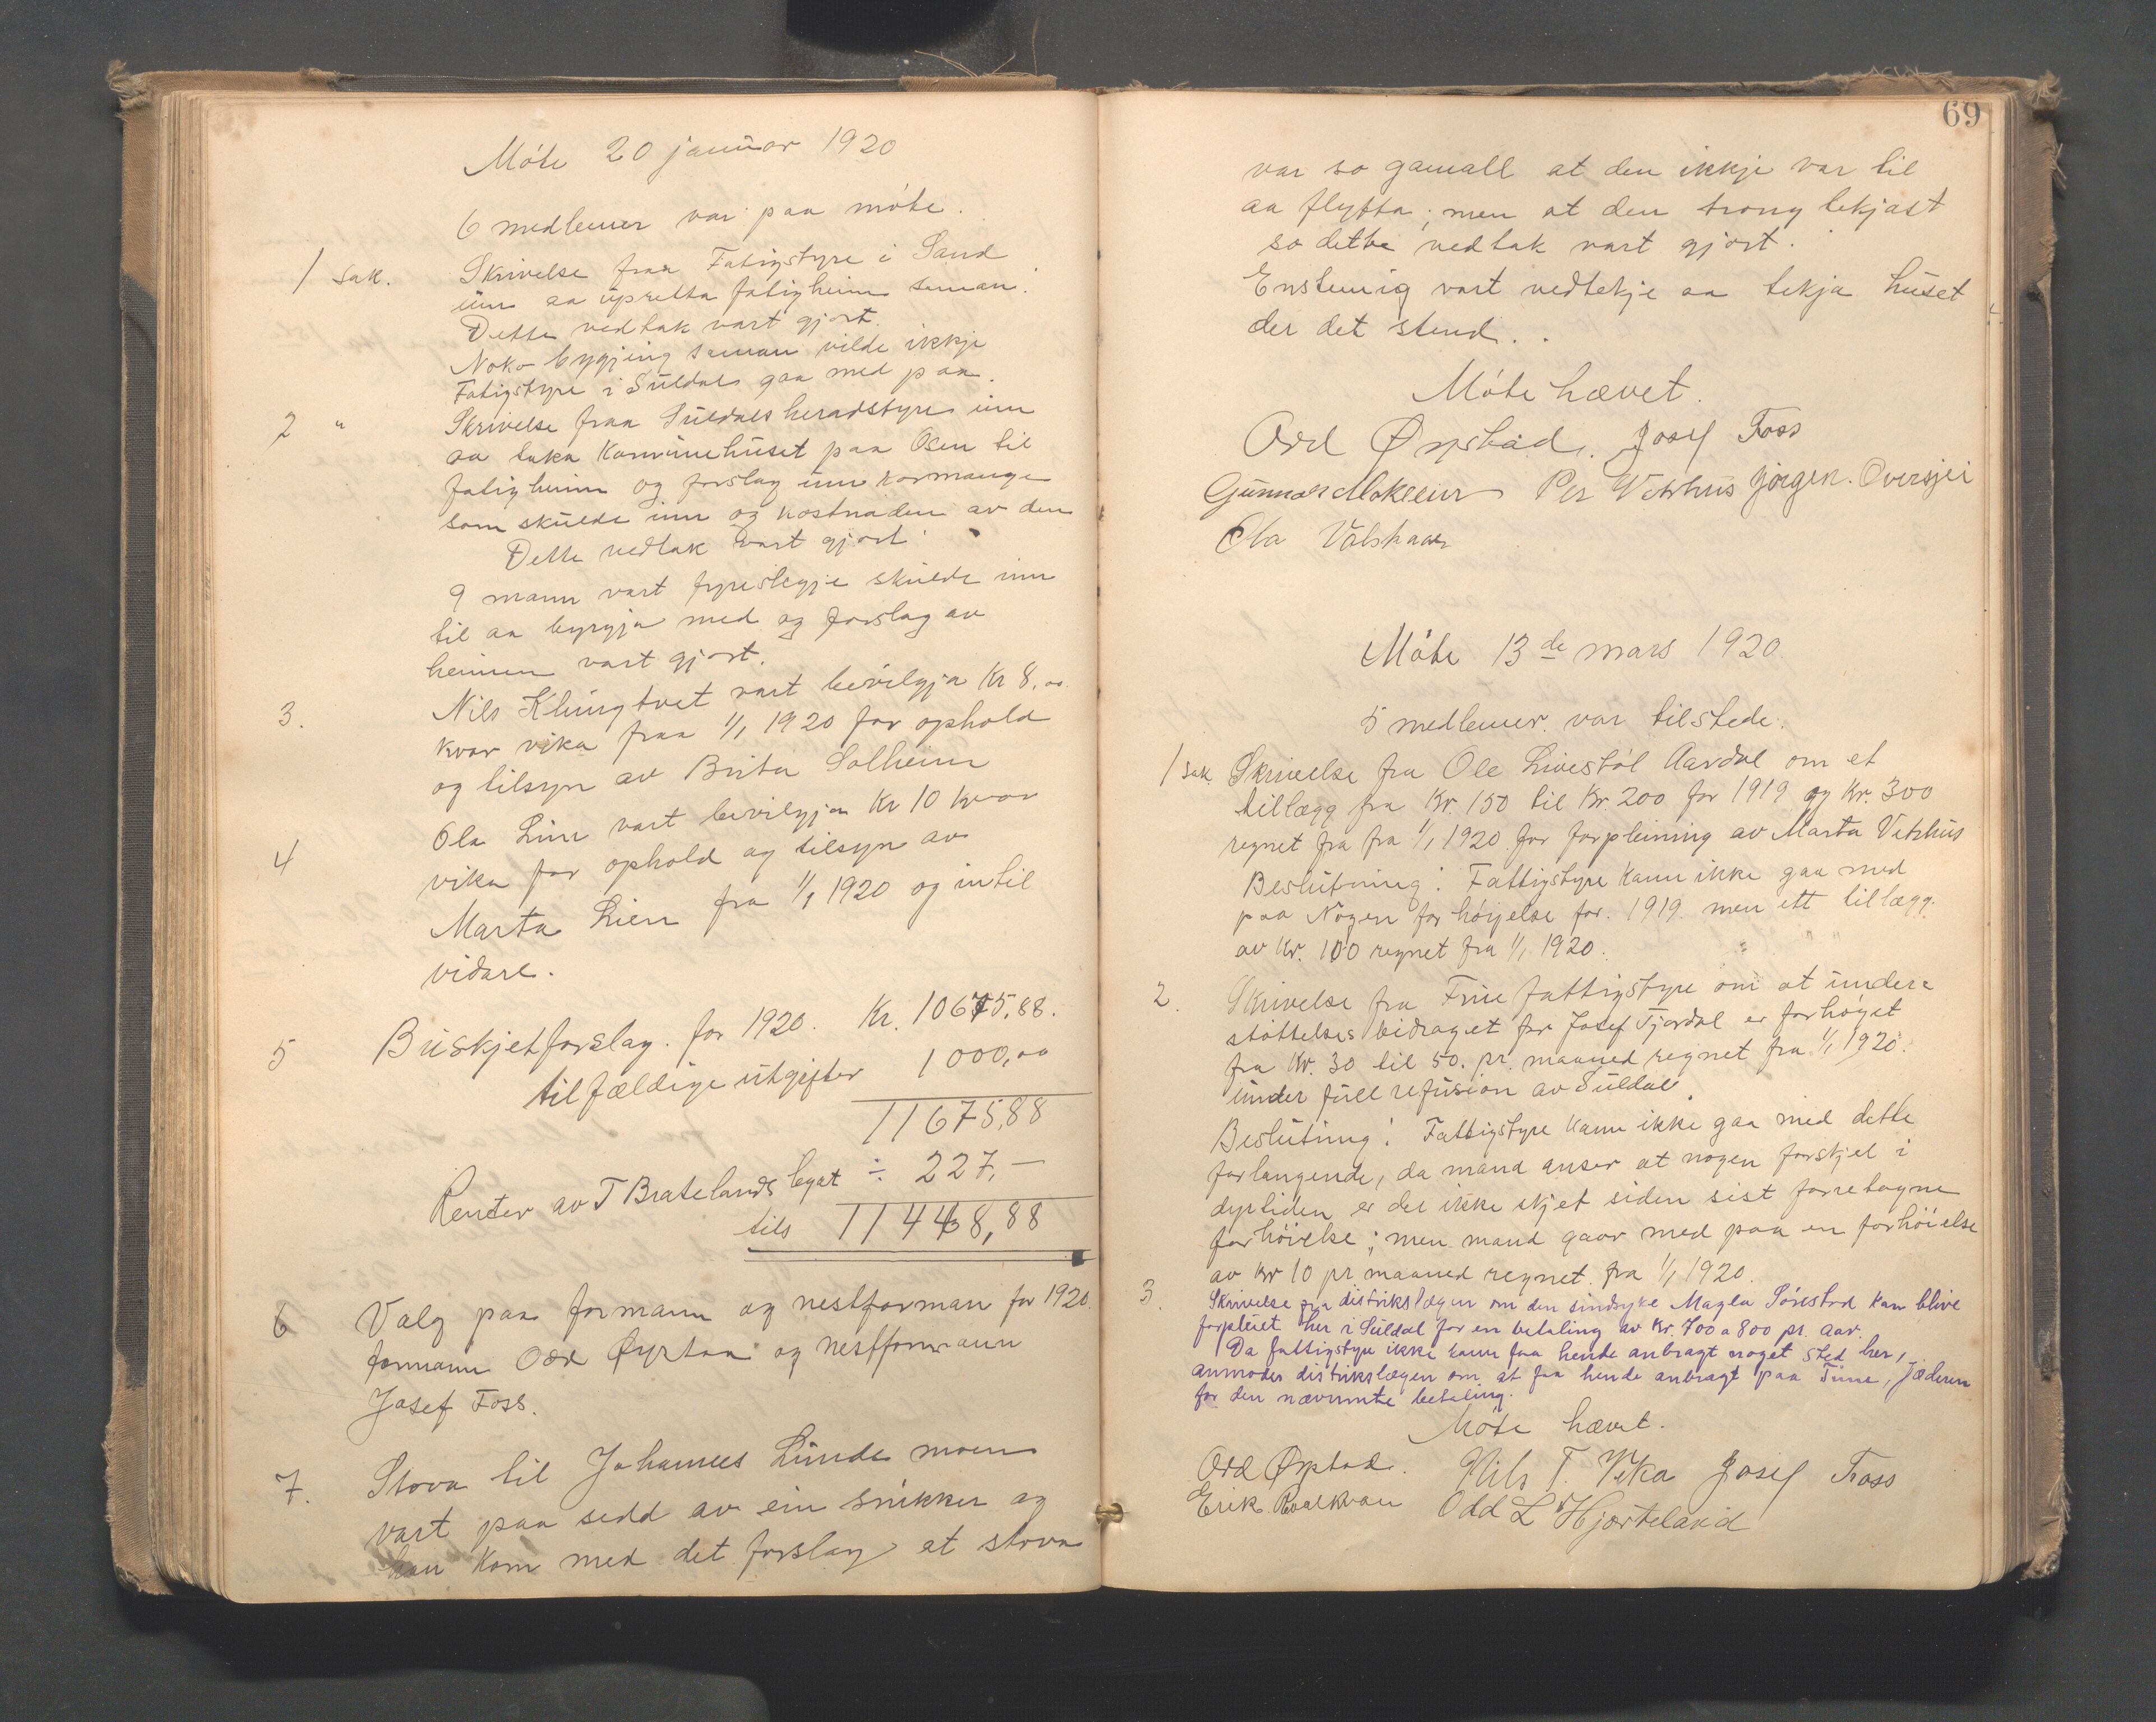 Møte 20 januar 1920
6 medlemer var paa møte.
1 sak. Skrivelse fraa Fatigstyre i Sand
um aa upretta fatigheim saman.
Dette vedtak vart gjort.
Noko bygjing saman vilde ikkje
Fatigstyre i Suldal gaa med paa.
2 " Skrivelse fraa Suldals heradstyre um
aa taka Komunehuset paa Osen til
fatigheim og forslag um kormange
som skulde inn og kostnaden av den
Dette vedtak vart gjort.
9 mann vart fyreslegje skulde inn
til aa byrgja med og forslag av
heimen vart gjort.
3. Nils Klungtvet vart bevilgja Kr 8,00
kvar vika fraa 1/1 1920 for ophold
og tilsyn av Brita Solheim
4 Ola Lien vart bevilgja Kr 10 kvar
vika for ophold og tilsyn av
Marta Lien fra 1/1 1920 og intil
vidare.
5 Buskjetforslag. for 1920. Kr. 10675,88.
tilfældige utgifter 1000,00
11675,88
Renter av T Bratelands legat ÷ 227,—
tils 11448,88
6 Valg paa formann og nestforman for 1920.
formann Odd Øystad og nestformann
Josef Foss.
7. Stova til Johannes Lunde moen
vart paa sedd av ein snikker og
han kom med det forslag at stova
69
var so gamall at den ikkje var til
aa flytta; men at den trong tekjast
so dette vedtak vart gjort.
Enstemig vart vedtekje aa tekja huset
der det stend.
Møte hævet.
Odd Øystad. Josef Foss
Gunnar Mokleiv Per Vetrhus Jørgen. Oversjei
Ola Valskaar
Møte 13de mars 1920.
5 medlemer var tilstede.
1 sak Skrivelse fra Ole Livestøl Aardal om et
tillægg fra Kr. 150 til Kr. 200 for 1919 og Kr. 300
regnet fra fra 1/1 1920 for forpleining av Marta Vetrhus
Beslutning: Fattigstyre kann ikke gaa med
paa Nogen forhøijelse for 1919 men ett tillægg.
av Kr. 100 regnet fra 1/1 1920.
2. Skrivelse fra Time fattigstyre om at under=
støttelses bidraget for Josef Tjordal er forhøget
fra Kr. 30 til 50. pr. maaned regnet fra 1/1 1920.
under full refusion av Suldal.
Beslutning: Fattigstyre kann ikke gaa med dette
forlangende, da mand anser at nogen forskjel i
dyrtiden er der ikke skjet siden sist forretagne
forhøielse; men mand gaar med paa en forhøielse
av kr 10 pr. maaned regnet fra 1/1 1920.
3. Skrivelse fra distrikslægen om den sindsyke Magla Sørestad kan blive
forpleiet her i Suldal for en betaling av Kr. 700 a 800 pr. aar.
Da fattigstyre ikke kann faa hende anbragt noget sted her,
anmodes distrikslægen om at faa hende anbragt paa Time, Jæderen
for den nævnnte betaling.
Møte hævet.
Odd Øystad. Nils T. Vika Josef Foss
Erik Roalkvam Odd L Hjorteland